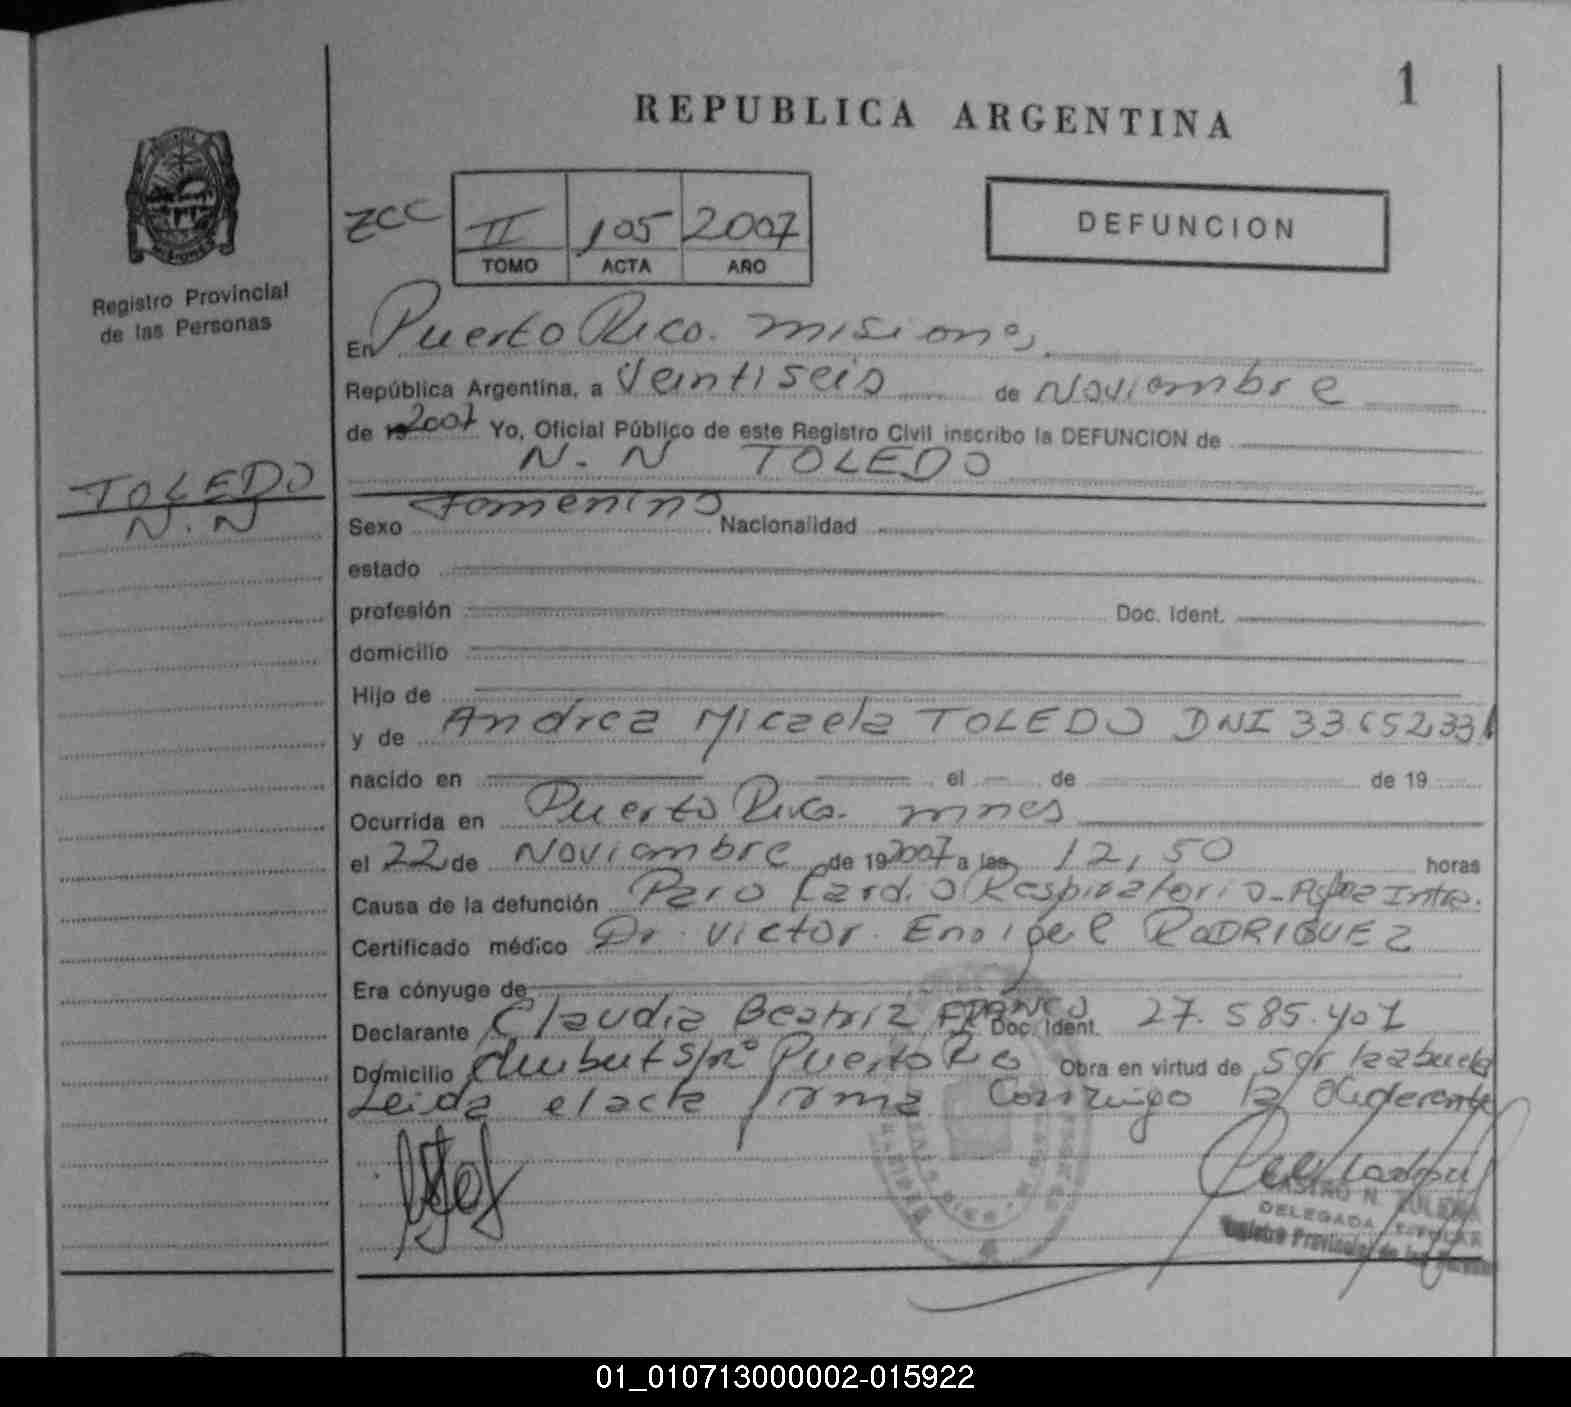 1
REPUBLICA ARGENTINA
ZCC
II 105 2007
TOMO ACTA AÑO
DEFUNCION
Registro Provincial
de las Personas
En Puerto Rico. misiones
República Argentina, a Veintiseis de Noviembre
de 19 2007 Yo, Oficial Público de este Registro Civil inscribo la DEFUNCION de
N. N TOLEDO
TOLEDO
N. N
Sexo Femenino Nacionalidad
estado
profesión Doc. Ident.
domicilio
Hijo de
y de Andrea Micaela TOLEDO DNI 33.652.331
nacido en el de de 19
Ocurrida en Puerto Rico. mnes
el 22 de Noviembre de 19 2007 a las 12,50 horas
Causa de la defunción Paro Cardio Respiratorio - Intra.
Certificado médico Dr. Victor RODRIGUEZ
Era cónyuge de
Declarante Claudia Beatriz FRANCO Doc. Ident. 27.585.401
Domicilio s/nº Puerto Rico Obra en virtud de ser la abuela
Leida el acta firma Conmigo la
CASTRO N. ZULEMA
DELEGADA TITULAR
Registro Provincial de las Personas
01_010713000002-015922